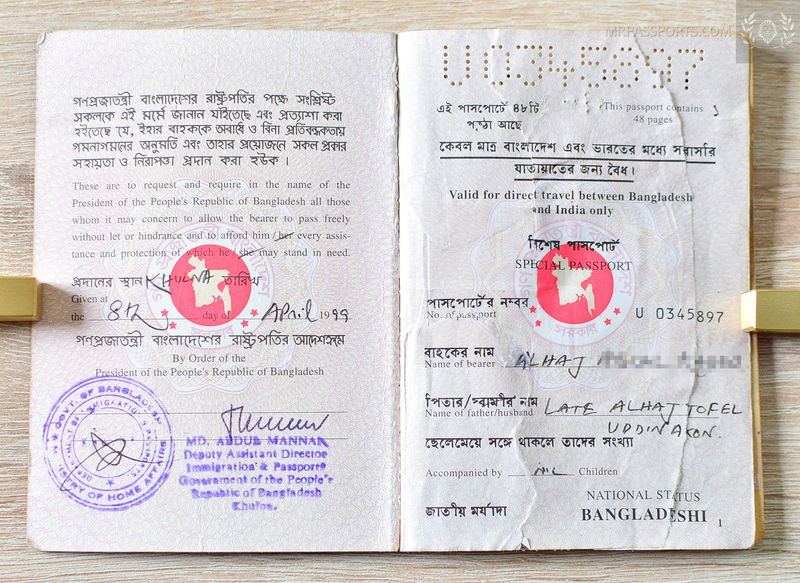 MRPASSPORTS.COM
গণপ্রজাতন্ত্রী বাংলাদেশের রাষ্ট্রপতির পক্ষে সংশ্লিষ্ট
সকলকে এই মর্মে জানান যাইতেছে এবং প্রত্যাশা করা
হইতেছে যে, ইহার বাহককে অবাধে ও বিনা প্রতিবন্ধকতায়
গমনাগমনের অনুমতি এবং তাহার প্রয়োজনে সকল প্রকার
সহায়তা ও নিরাপত্তা প্রদান করা হউক।
These are to request and require in the name of the
President of the People's Republic of Bangladesh all those
whom it may concern to allow the bearer to pass freely
without let or hindrance and to afford him / her every assis-
tance and protection of which he / she may stand in need.
প্রদানের স্থান KHULNA তারিখ
Given at
the 8th day of April 1999
গণপ্রজাতন্ত্রী বাংলাদেশের রাষ্ট্রপতির আদেশক্রমে
By Order of the
President of the People's Republic of Bangladesh
GOVT. OF BANGLADESH
MINISTRY OF HOME AFFAIRS
MD. ABDUL MANNAN
Deputy Assistant Director
Immigration & Passports
Government of the People's
Republic of Bangladesh
Khulna.
U 0345897
এই পাসপোর্টে ৪৮টি
পৃষ্ঠা আছে
This passport contains
48 pages
কেবল মাত্র বাংলাদেশ এবং ভারতের মধ্যে সরাসরি
যাতায়াতের জন্য বৈধ।
Valid for direct travel between Bangladesh
and India only
বিশেষ পাসপোর্ট
SPECIAL PASSPORT
পাসপোর্টের নম্বর
No. of passport
U 0345897
বাহকের নাম
Name of bearer
ALHAJ
পিতার/স্বামীর নাম
Name of father/husband
LATE ALHAJ TOFEL
UDDIN AKON.
ছেলেমেয়ে সঙ্গে থাকলে তাদের সংখ্যা
Accompanied by NIL Children
জাতীয় মর্যাদা
NATIONAL STATUS
BANGLADESHI
1